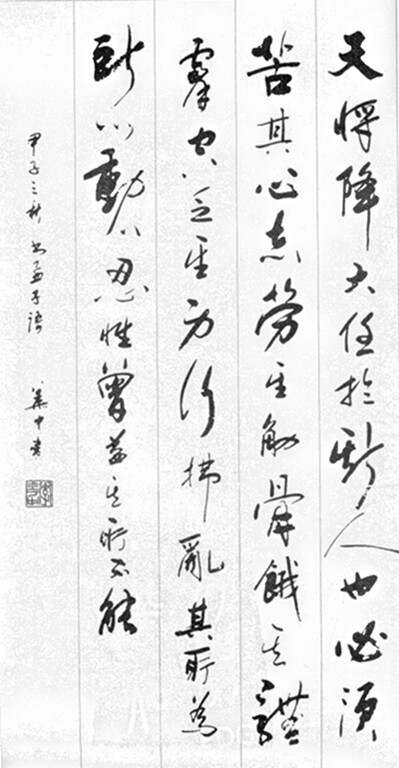 天将降大任於斯人也必須
苦其心志勞其筋骨餓其體
膚空乏其身行拂亂其所為
所以動心忍性曾益其所不能
甲子之秋书孟子語 華中